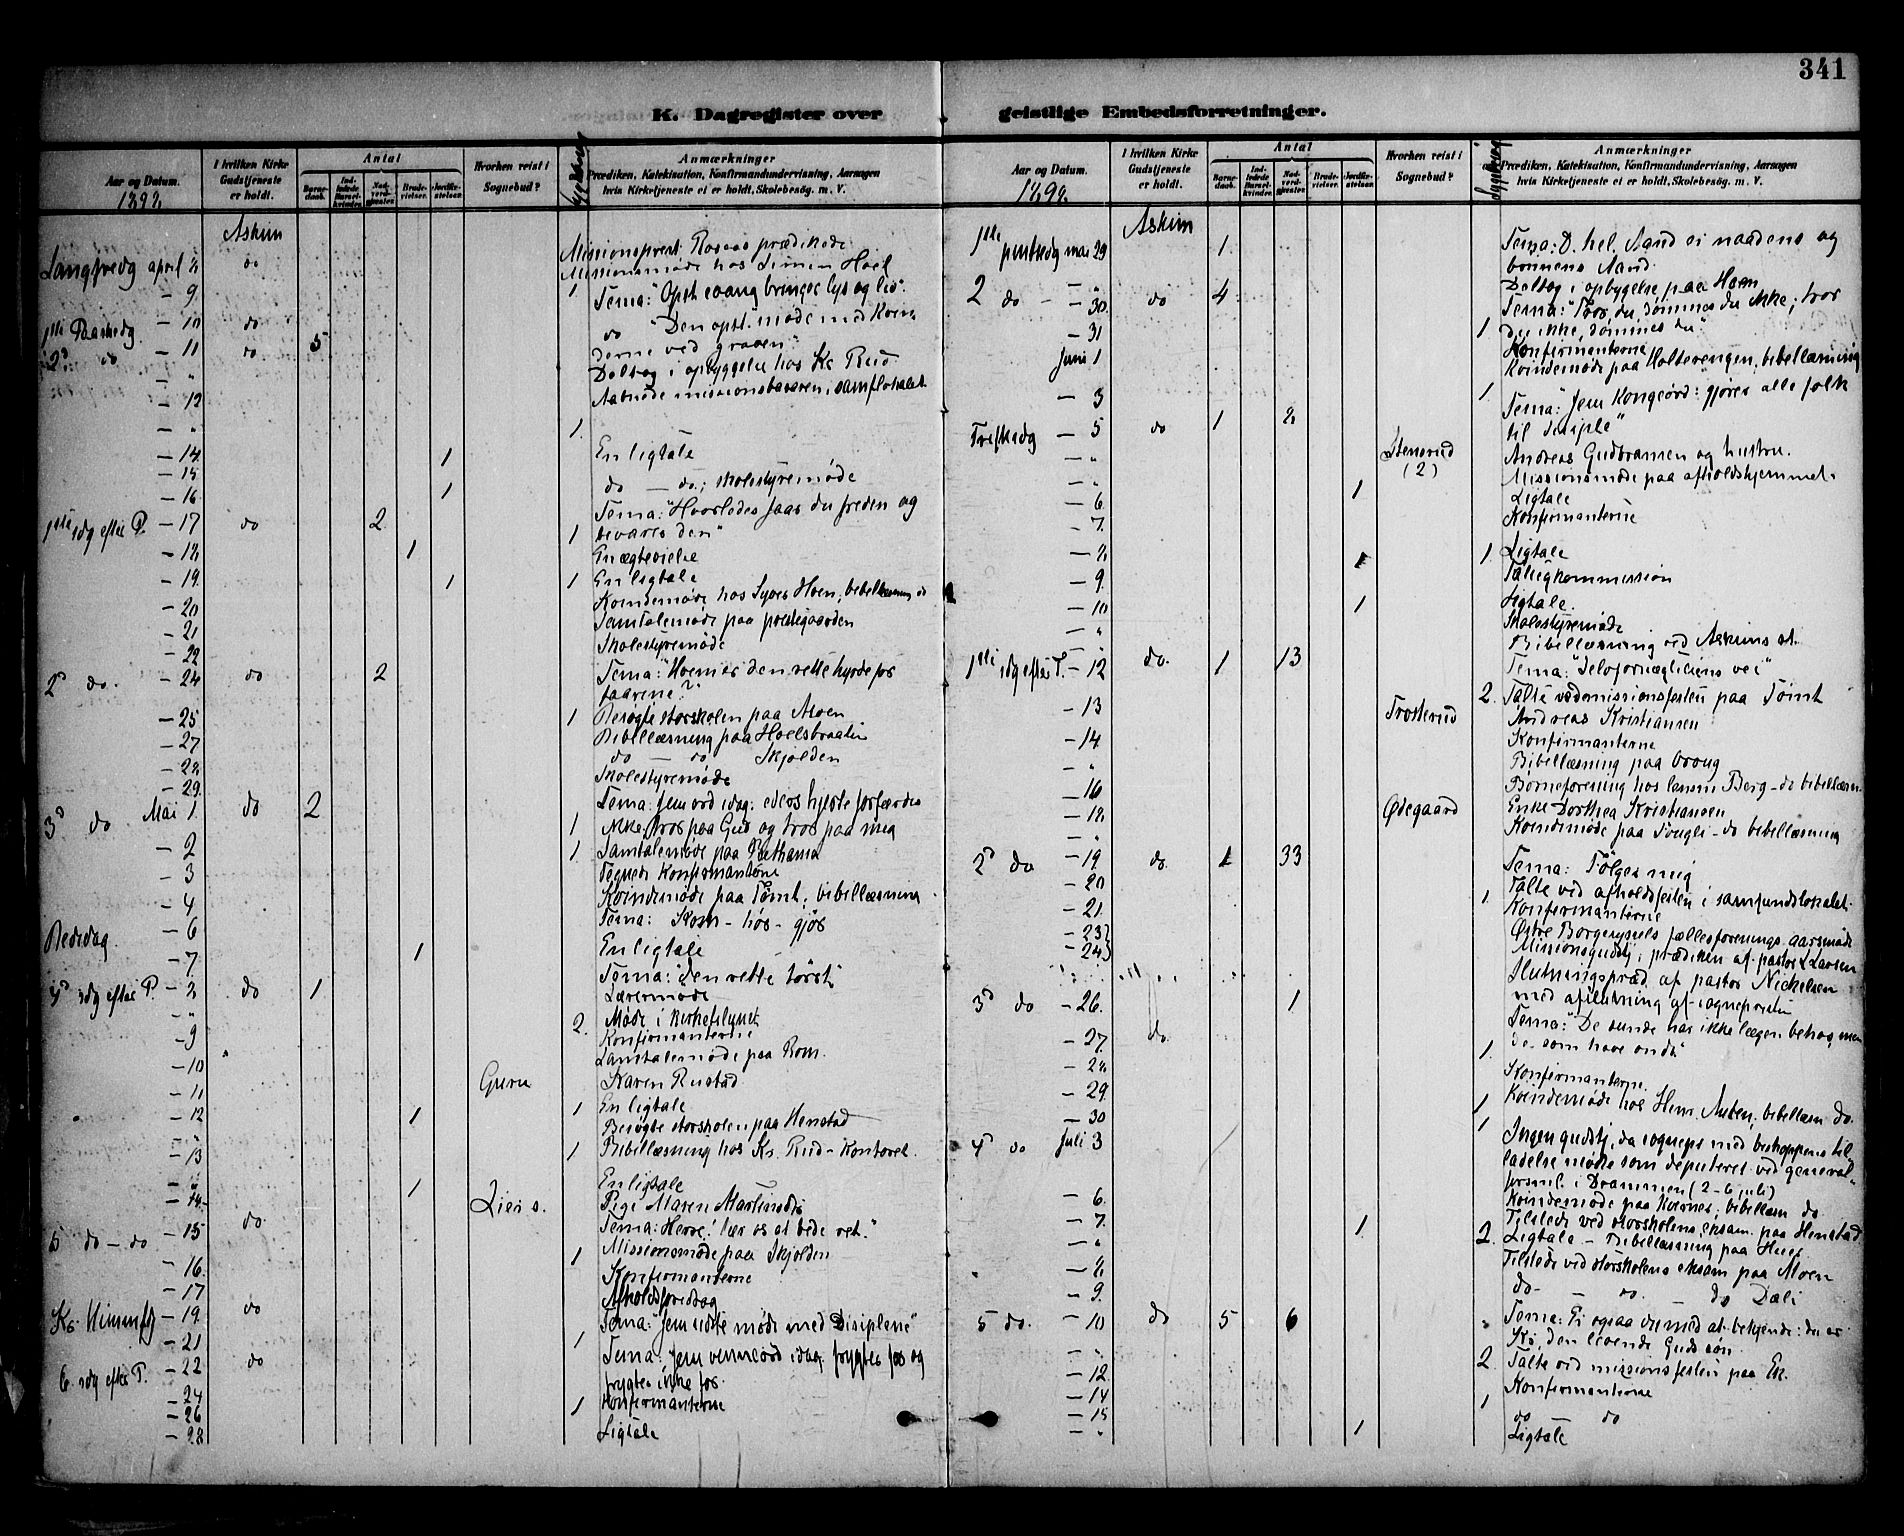 341
K. Dagregister over geistlige Embedsforretninger.
Aar og Datum.
1898.
I hvilken Kirke Gudstjeneste er holdt.
Antal
Barnedaab.
Indledede Barselkvinder.
Nadverdgjester.
Brudevielser.
Jordfæstelser.
Hvorhen reist i Sognebud?
Anmærkninger
Prædiken, Katekisation, Konfirmandundervisning, Aarsagen
hvis Kirketjeneste ei er holdt, Skolebesøg. m. V.
Askim
Missionsprest Rosaas prædikede
Langfredg april 8 do
Missionsmøde hos Simen Hoel
— 9. 1.
Tema: "Opst. evang. bringer lys og liv"
1ste Paaskedg — 10 do
do "Den opst. møde med Kvin
derne ved graven"
2d do — 11 do 5
Deltog i opbyggelse hos Kr. Rud
— "
Aabnede missionsbasaren i samf.lokalet
— 12
— " 1.
— 14. 1
En ligtale
— 15
do — do; skolestyremøde
— 16 1
Tema: "Hvorledes faar du freden og
bevares den"
1ste sdg efter P. — 17 do 2 1
— 18 1
En ægtevielse
— 19. 1 1
En ligtale
Kvindemøde hos Syver Hoen, bibellæsn. do
— 20
Samtalemøde paa prestegaarden
— 21
Skolestyremøde
— 22
2d do. — 24 do 2
Tema: "Hvem er den rette hyrde for
faarene?"
— 25 1
Besøgte storskolen paa Moen
— 27
Bibellæsning paa Hoelsbraaten
— 28
do — do Skjolden
Skolestyremøde
— 29.
3d do Mai 1. do 2 1
Tema: Jesu ord idag: eders hjerte forfærdes
ikke, tro paa Gud og tro paa mig
— 2 1.
Samtalemøde paa Bethania
— 3
Tegnede Konfirmanterne
— 4
Kvindemøde paa Tømt; bibellæsning
Bededag. — 6
Tema: Kom — hør — gjør
— 7 1
En ligtale
4d sdg efter P. — 8 do 1
Tema: "den rette tørst"
— "
Lærermøde
2.
Møde i Kirketilsynet
— 9
Konfirmanterne
— 10
Samtalemøde paa Rom.
— 11 Guru
Karen Rustad
— 12 1 1
En ligtale
Besøgte storskolen paa Henstad
— 13 1
Bibellæsning hos Kr. Rud — Kontoret.
— " 1
En ligtale
— 14. Liers.
Pige Maren Martinsdtr
5 do — do — 15 do.
Tema: Herre! lær os at bede ret."
— 16. 1
Missionsmøde paa Skjolden
— 17
Konfirmanterne
Afholdsforedrag
Kr. Himmelfg — 19. do
Tema: "Jesu sidste møde med Disiplene"
— 21 1
6. sdg efter P. — 22 do
Tema: Jesu venneord idag: frygter for og
frygter ikke for.
— 24
Konfirmanterne
— 26 1
— 28
Ligtale
Aar og Datum.
1898.
I hvilken Kirke Gudstjeneste er holdt.
Antal
Barnedaab.
Indledede Barselkvinder.
Nadverdgjester.
Brudevielser.
Jordfæstelser.
Hvorhen reist i Sognebud?
Anmærkninger
Prædiken, Katekisation, Konfirmandundervisning, Aarsagen
hvis Kirketjeneste ei er holdt, Skolebesøg. m. V.
Askim
1ste pinsedg mai 29 1
Tema: D. hel. Aand ei naadens og
bønnens Aand.
— "
Deltog i opbygelse paa Hoen
2 do — 30. do 4
Tema: "Tror du, dømmes du ikke; tror
du ikke, dømmes du"
— 31 1
Konfirmanterne
Juni 1
Kvindemøde paa Holterengen, bibellæsning
— 3 1
Trefsdg — 5 do 1 2
Tema: "Jesu Kongeord: gjører alle folk
til disiple"
— " Stensrud (2)
Andreas Gudbransen og hustru.
— "
Missionsmøde paa afholdshjemmet
— 6 1
Ligtale
— 7.
Konfirmanterne
— 8 1 1
Ligtale
— 9.
Fattigkommission
— 10 1
Ligtale.
Skolestyremøde
— "
Bibellæsning ved Askims st.
1ste sdg efter T. — 12 do. 1 13
Tema: "Selvfornægtelsens vei"
2.
Talte ved missionsfesten paa Tømt
— 13 Trosterud
Andreas Kristiansen
— 14.
Konfirmanterne
— "
Bibellæsning paa Vraug
— 16
Børneforening hos lensm. Berg — do bibellæsn.
— 18 Ødegaard
Enke Dorthea Kristiansen
— "
Kvindemøde paa Fougli — do bibellæsning
2d do — 19. do. 1 33
Tema: Følges mig
— 20
Talte ved afholdsfesten i samfundslokalet
— 21. 1
Konfirmanterne
— 23
— 24
Østre Borgesyssels fællesforenings aarsmøde
Missionsgudstj, prædiken af pastor L Larsen
Slutningspræd. af pastor Nickelsen
med afslutning af sognepresten
3d do — 26. 1
Tema: "De sunde har ikke lægen behov, men
de som have ondt"
— 27. do. 1.
— 28
Konfirmanterne.
— 29 1
Kvindemøde hos Hem. Auten, bibellæsn do.
— 30 1
4d do Juli 3
Ingen gudstj, da sognepr med biskoppens til
ladelse mødte som deputeret ved general
forsml. i Drammen (2–6 juli)
— 6.
Kvindemøde paa Kjernes, bibellæsn do
— 7.
Tilstede ved storskolens eksam. paa Henstad
— " 1 2.
Ligtale — Bibellæsning paa Huer
— 8
Tilstede ved storskolens eksam paa Moen
— 9.
do — do — do Dæli
5 do. — 10 do 5 6
Tema: Ti ogsaa du med at bekjende: du er
Kr, den levende Guds søn.
— " 2.
Talte ved missionsfesten paa Ek.
— 12.
Konfirmanterne
— 14 1
— 15
do do
— " 1
Ligtale